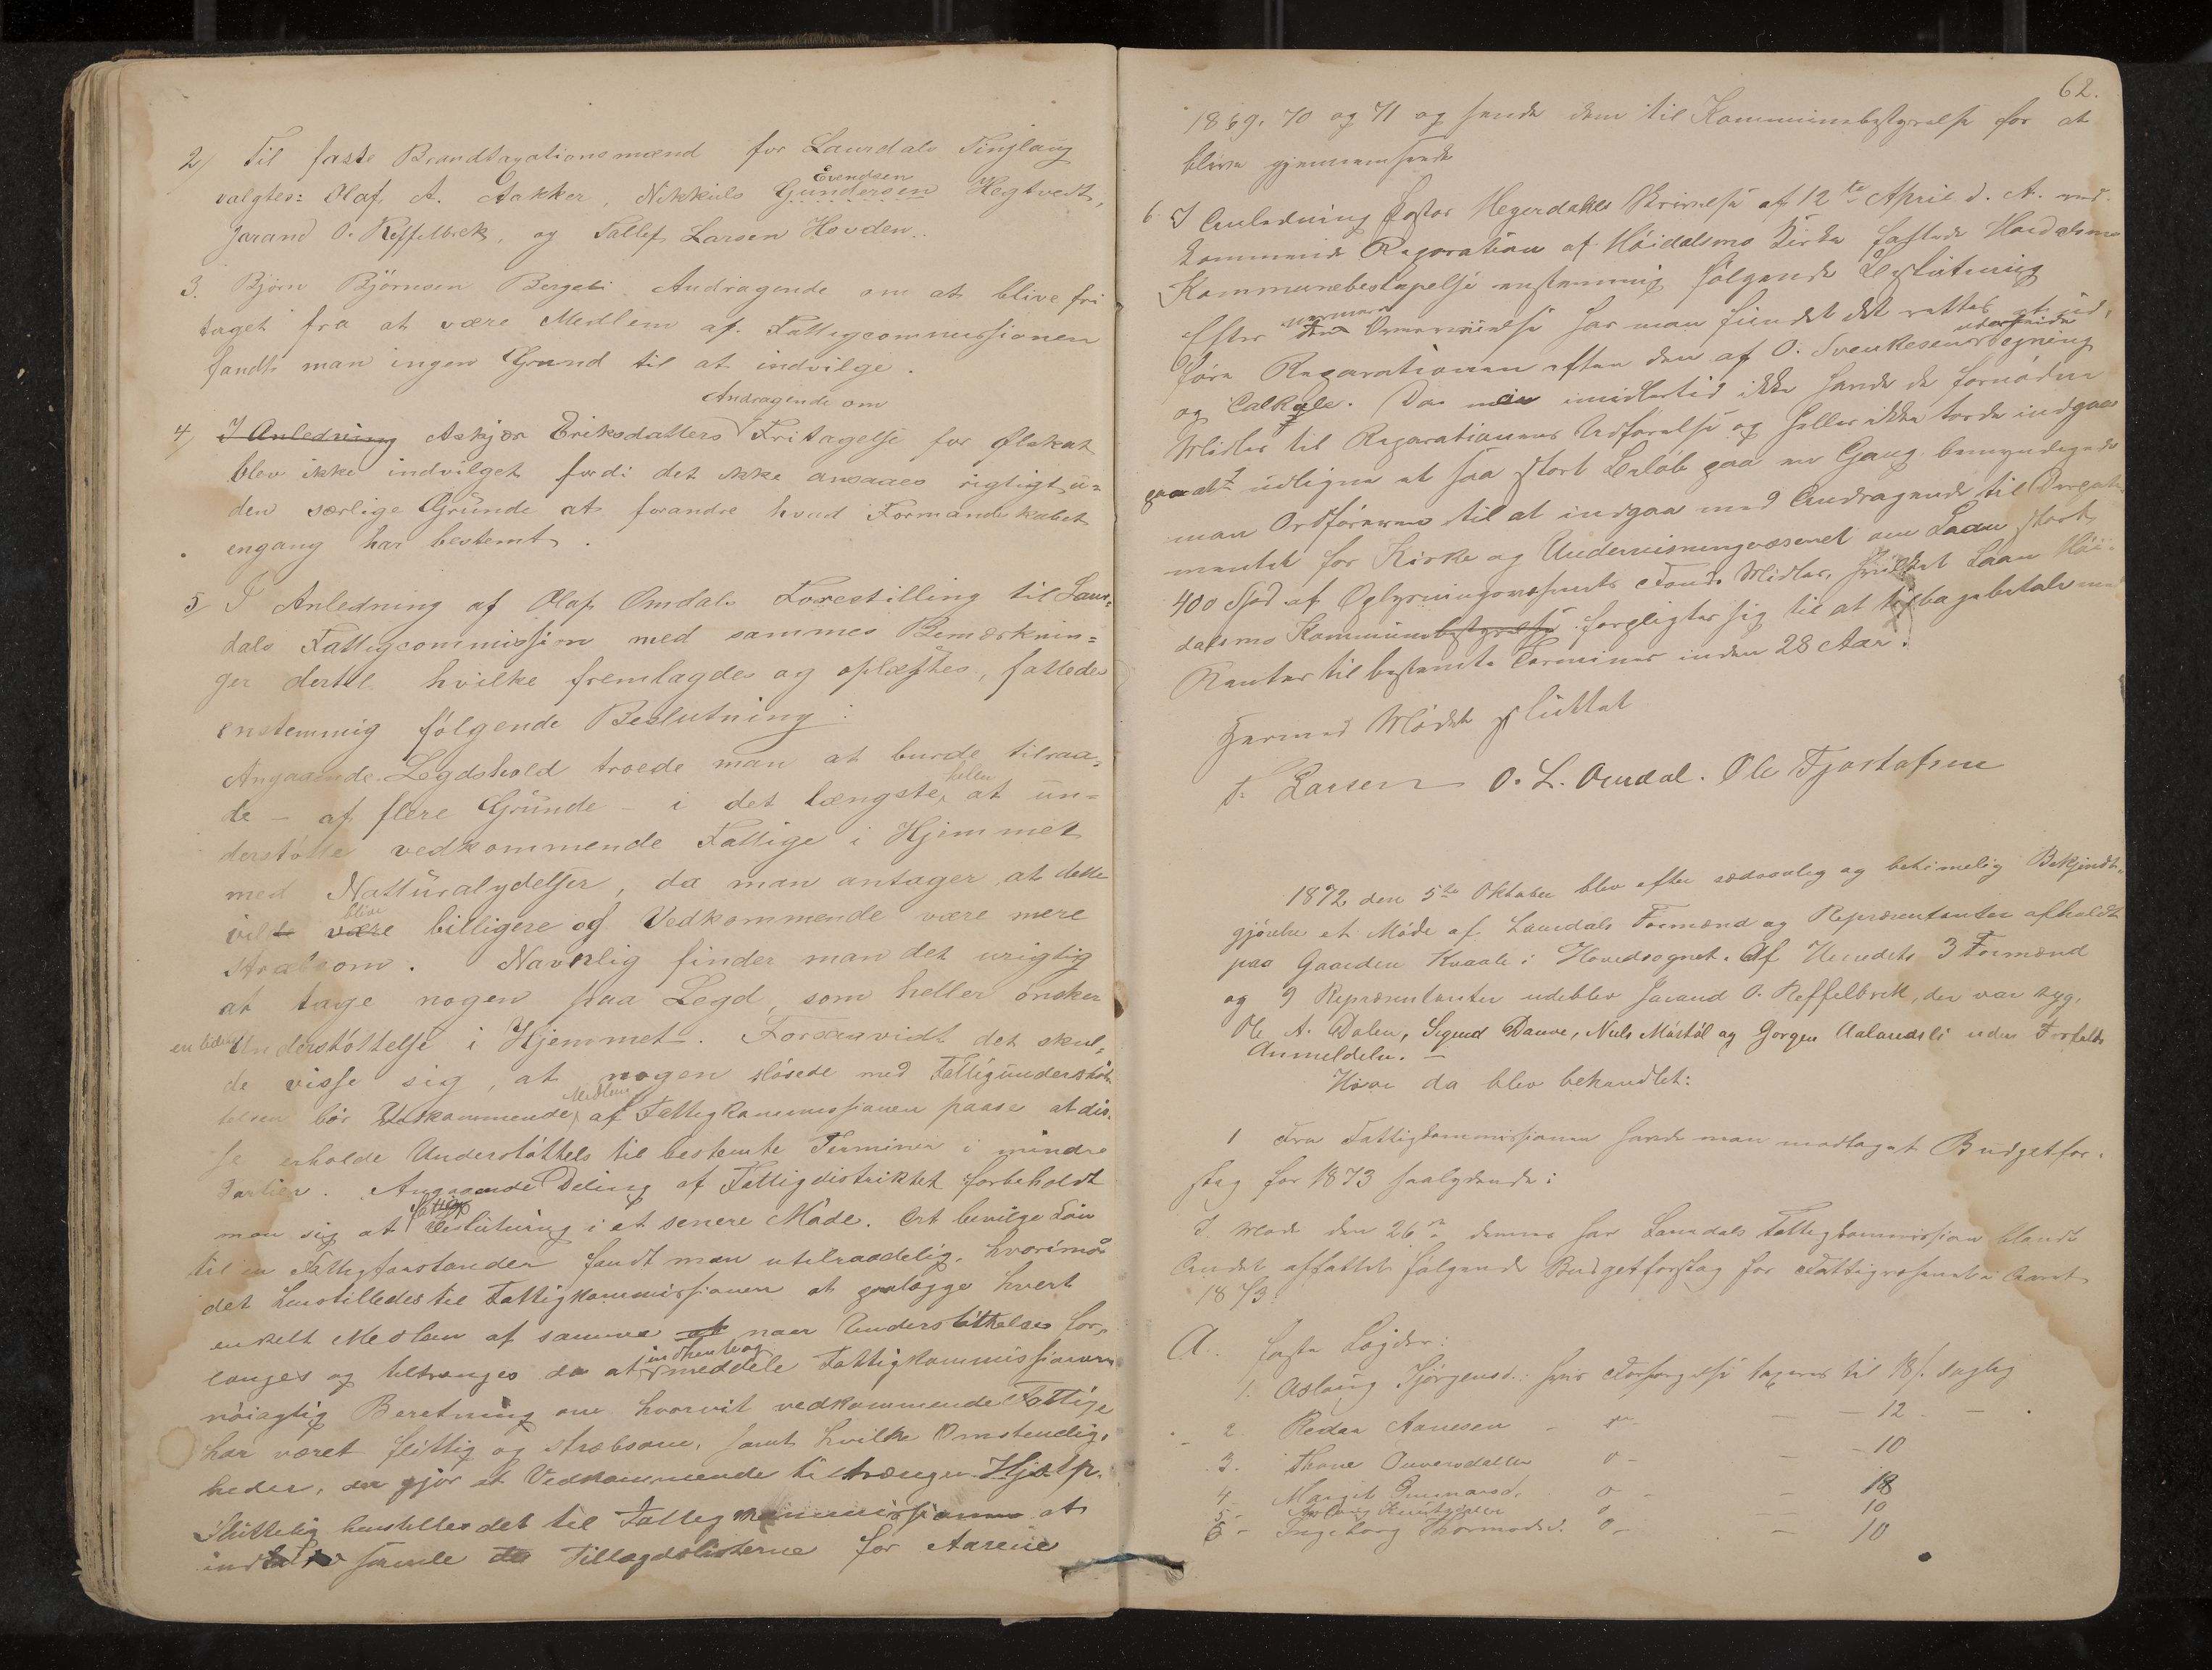 2/ Til faste Brandtaxationsmænd for Laurdals Tinglaug
valgtes: Olaf A. Aakker, Nikkuls Gundersen Evendsen Hegtvedt,
Jarand O. Reffelbrek, og Tallef Larsen Hovden.
3. Bjørn Björnsen Bergeli Andragende om at blive fri
taget fra at være Medlem af Fattigcommissionen
fandt man ingen Grund til at indvilge.
Andragende om
4/ I Anledning Askjær Eriksdatters Fritagelse for Ølskat
blev ikke indvilget fordi det ikke ansaaes rigtigt u=
den særlige Grunde at forandre hvad Formandskabet
engang har bestemt.
5/ I Anledning af Olaf Omdals Forestilling til Laur-
dals Fattigcommission med sammes Bemærknin=
ger dertil hvilke fremlagdes og oplæstes, fattedes
enstemmig følgende Beslutning:
Angaaende Legdshold troede man at burde tilraa-
de – af flere Grunde – i det længste heller at un=
derstøtte vedkommende Fattige i Hjemmet
med Natturalydelser, da man antager at dette
vilde være blive billigere og Vedkommende være mere
stræbsom. Navnlig finder man det urigtig
at tage nogen paa Legd, som heller ønsker
en liden Understøttelse i Hjemmet. Forsaavidt det skul=
de visse sig, at nogen sløsede med Fattigunderstøt-
telsen bør Vedkommende Medlem af Fattigkommissionen paase at dis-
se erholde Understøttels til bestemte Terminer i mindre
Partier. Angaaende Deling af Fattigdistriktet forbeholdt
man sig at fatte Beslutning i et senere Møde. At bevilge Løn
til en Fattigforstander fandt man utilraadelig, hvorimod
det henstilledes til Fattigkommissionen at paalægge hvert
enkelt Medlem af samme at naar Understøttelse for-
langes og tiltrænges da at indhente og meddele Fattigkommissionen
nøiagtig Beretning om hvorvit vedkommende Fattige
har været flittig og stræbsom, samt hvilke Omstendig-
heder, der gjør at Vedkommende tiltrænger Hjelp.
Sluttelig henstilles det til Fattigkommissionen at
indsamle de Tillægdslisterne for Aarene
62.
1869, 70 og 71 og sende dem til Kommunebestyrelse for at
blive gjennemseede
6. I Anledning Pastor Hegerdahls Skrivelse af 12te April d. A. ved-
kommende Reparation af Høidalsmo Kirke fattede Høidalsmo
Kommunebestyrelse enstemmig følgende Beslutning
Efter nærmere Overveielse har man fundet det rettest at ud-
føre Reparationen efter den af O. Svenkesen udarbeidede Tegning
og Calkyle. Da man imidlertid ikke havde de fornødne
Midler til Reparationens Udførelse og heller ikke torde indgaa
paa at udligne et saa stort Beløb paa en Gang bemyndigede
man Ordføreren til at indgaa med Andragende til Departe-
mentet for Kirke og Undervisningvæsenet om Laan stort
400 Spd af Oplysningsvæsenets Fonds Midler, hvilket Laan Høi-
dalsmo Kommunebestyrelse forpligter sig til at tilbagebetale med
Renter til bestemte Terminer inden 28 Aar.
Hermed Mødet sluttet
T. Larsen O. L. Omdal. Ole Tjostofsen
1872 den 5te Oktober blev efter sædvanlig og betimelig Bekjendt-
gjørelse et Møde af Laurdals Formænd og Repræsentanter afholdt
paa Gaarden Kvaale i Hovedsognet. Af Herredets 3 Formænd
og 9 Repræsentanter udeblev Jarand O. Reffelbrek, der var syg,
Ole A. Dalen, Sigurd Dauve, Niels Måstöl og Jorgen Aalandsli uden Forfalds
Anmeldelse. –
Hvor da blev behandlet:
1 Fra Fattigkommissionen havde man modtaget Budgetfor-
slag for 1873 saalydende:
I Møde den 26de dennes har Laurdals Fattigkommission blandt
Andet affattet følgende Budgetforslag for Fattigvæsenet i Aaret
1873.
A. faste Lægder:
1. Aslaug Tjørgensd.: hvis Forsørgelse taxeres til 18 s. daglig
2 Redar Aanesen – do – – 12 –
3. Thone Ounersdatter o – – 10
4 Margit Gunnarsd. o – – 18
5 – Aslaug Knutsdatter o – 10
6 – Ingeborg Thormodsd. o – – 10